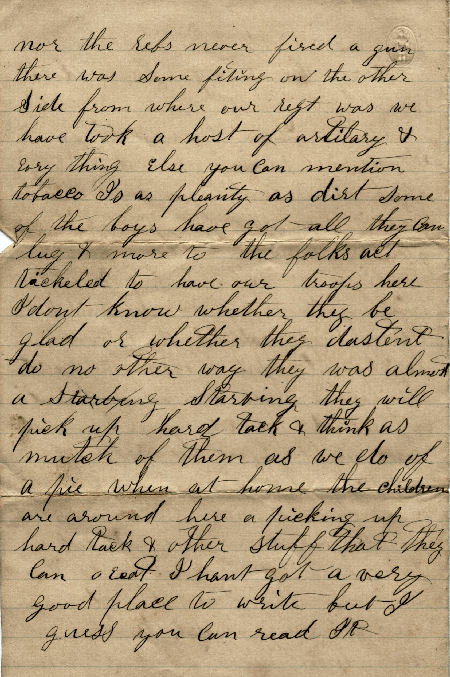 nor the Rebs never fired a gun
there was Some fiting on the other
Side from where our regt was we
have took a host of artilary &
evry thing Else you Can mention
tobacco Is as pleanty as dirt Some
of the boys have got all they Can
lug & more to the folks act
tickeled to have our troops here
I dont know whether they be
glad or whether they dastent
do no other way they was almost
a Starbving Starving they will
pick up hard tack & think as
mutch of them as we do of
a pie when at home the children
are around here a picking up
hard tack & other stuff that they
Can eat I hant got a very
good place to write but I
guess you Can read It